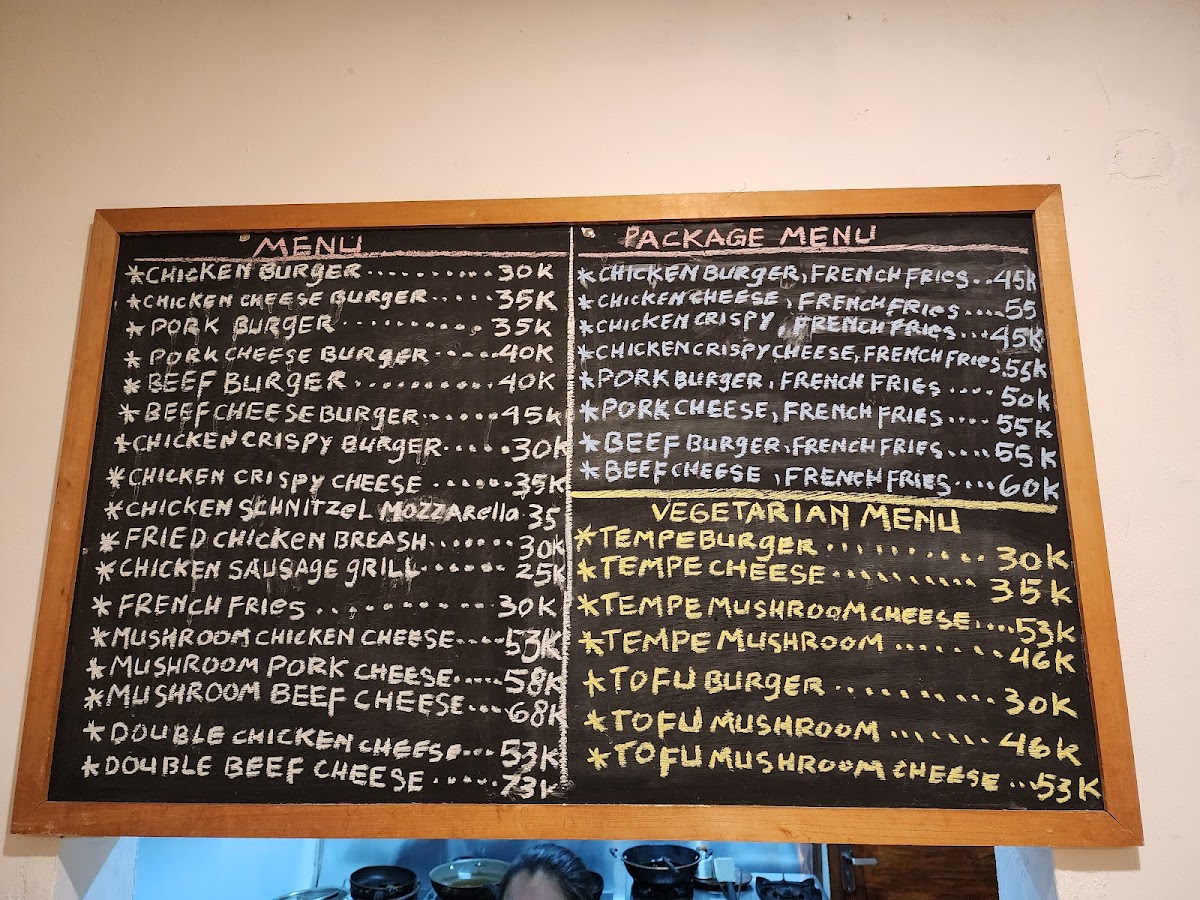 MENU
*CHICKEN BURGER..........30K
*CHICKEN CHEESE BURGER.....35K
*PORK BURGER..........35K
*PORK CHEESE BURGER.....40K
*BEEF BURGER..........40K
*BEEF CHEESE BURGER......45K
*CHICKEN CRISPY BURGER.....30K
*CHICKEN CRISPY CHEESE.....35K
*CHICKEN SCHNITZEL MOZZARELLA 35
*FRIED CHICKEN BREASH.......30K
*CHICKEN SAUSAGE GRILL......25K
*FRENCH FRIES..........30K
*MUSHROOM CHICKEN CHEESE....53K
*MUSHROOM PORK CHEESE....58K
*MUSHROOM BEEF CHEESE....68K
*DOUBLE CHICKEN CHEESE...53K
*DOUBLE BEEF CHEESE.......73K
PACKAGE MENU
*CHICKEN BURGER, FRENCH FRIES..45K
*CHICKEN CHEESE, FRENCH FRIES....55
*CHICKEN CRISPY, FRENCH FRIES...45K
*CHICKEN CRISPY CHEESE, FRENCH FRIES.55K
*PORK BURGER, FRENCH FRIES....50K
*PORK CHEESE, FRENCH FRIES....55K
*BEEF BURGER, FRENCH FRIES....55K
*BEEF CHEESE, FRENCH FRIES....60K
VEGETARIAN MENU
*TEMPE BURGER..........30K
*TEMPE CHEESE..........35K
*TEMPE MUSHROOM CHEESE....53K
*TEMPE MUSHROOM.......46K
*TOFU BURGER.........30K
*TOFU MUSHROOM.......46K
*TOFU MUSHROOM CHEESE...53K